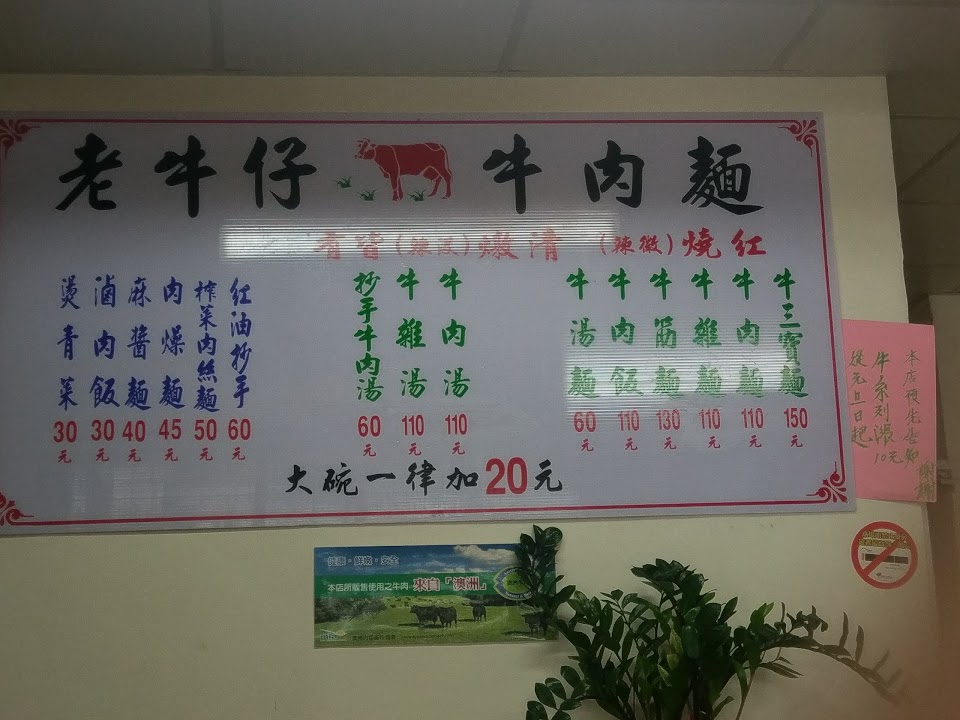 老牛仔 牛肉麵
紅燒(微辣) 清燉(辣)皆有
牛三寶麵 150元
牛肉麵 110元
牛雜麵 110元
牛筋麵 130元
牛肉飯 110元
牛湯麵 60元
牛肉湯 110元
牛雜湯 110元
抄手牛肉湯 60元
紅油抄手 60元
榨菜肉絲麵 50元
肉燥麵 45元
麻醬麵 40元
滷肉飯 30元
燙青菜 30元
大碗一律加20元
牛系列漲10元
從元旦日起
健康·鮮嫩·安全
本店所販售使用之牛肉 來自「澳洲」